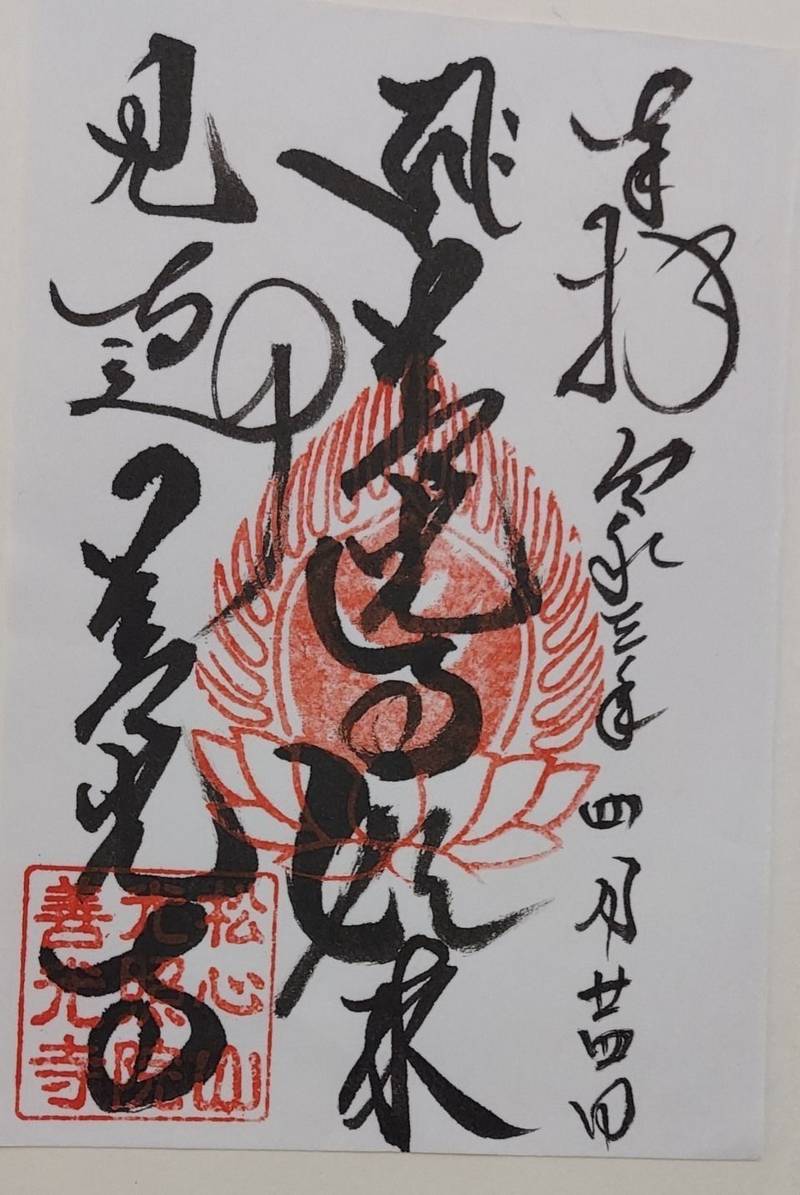 奉拝 令和三年四月廿四日
善光寺如来
善光寺
松心山
光照院
善光寺